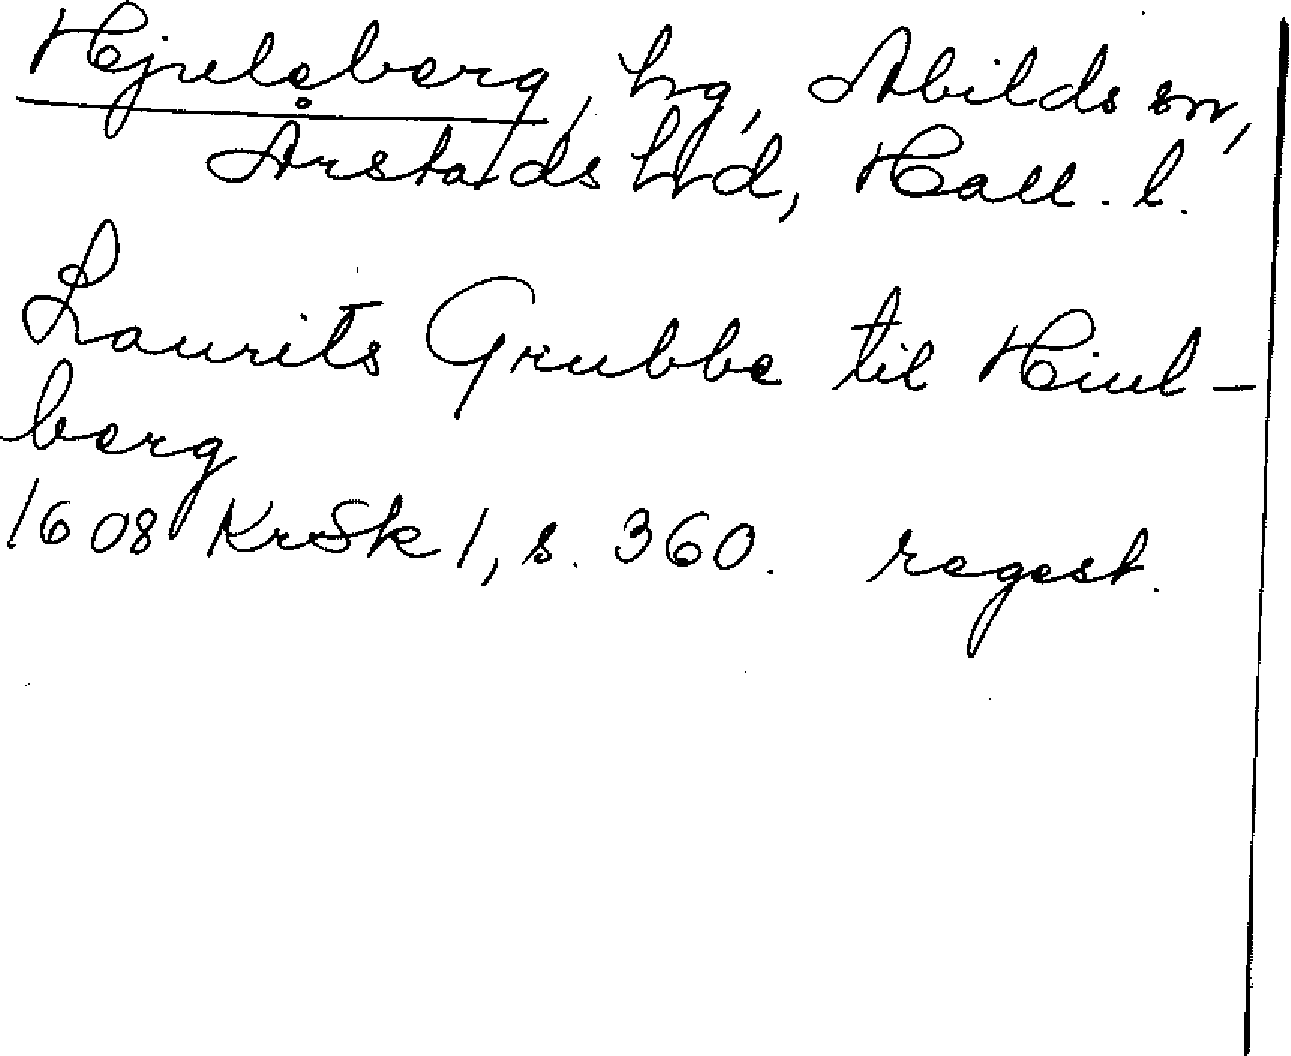 Hjuleberg, hg, Abilds sn,
Årstads hrd, Hall. l.
Laurits Grubbe til Hiul-
berg
1608 KrSk 1, s. 360. regest.